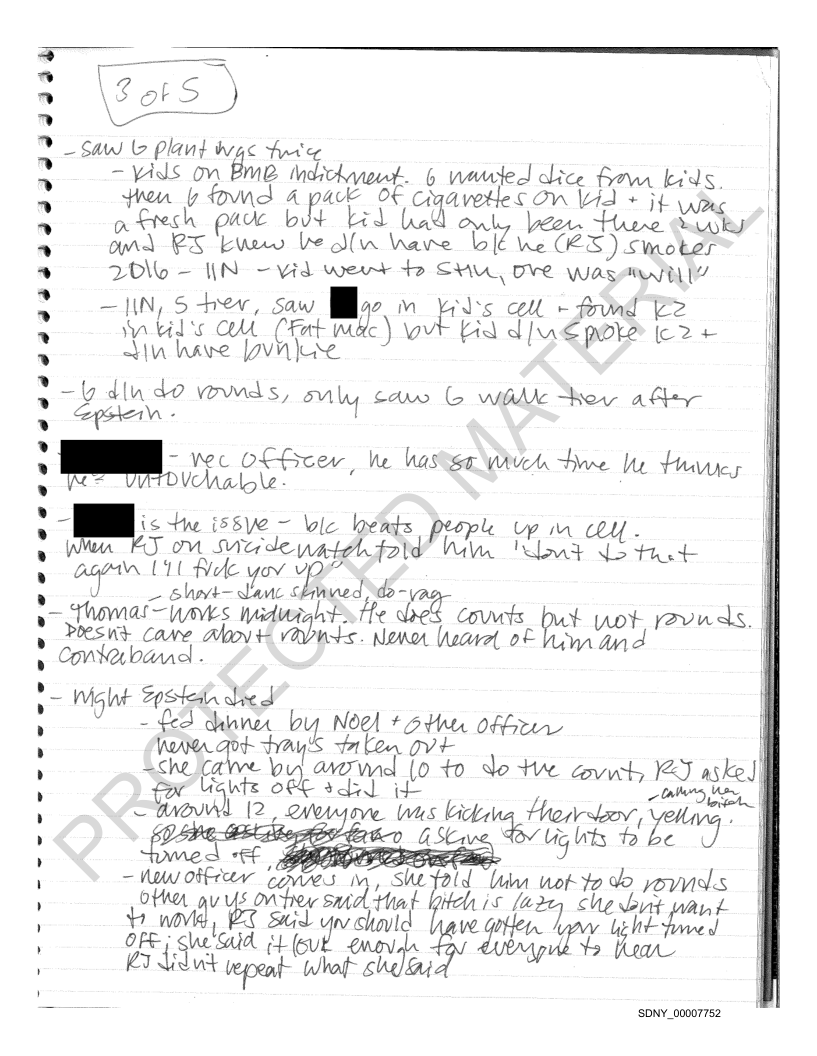 3 of 5
- saw G plant wgs twice
- kids on BMB indictment. G wanted dice from kids.
then G found a pack of cigarettes on kid + it was
a fresh pack but kid had only been there 2 wks
and RJ knew he d/n have b/c he (RJ) smokes
2016 - 11N - kid went to SHU, one was "Will"
- 11N, 5 tier, saw go in kid's cell + found K2
in kid's cell (Fat Mac) but kid d/n spoke K2 +
d/n have bunkie
- G d/n do rounds, only saw G walk tier after
Epstein.
- rec officer, he has so much time he thinks
he = untouchable.
- is the issue - b/c beats people up in cell.
when RJ on suicide watch told him "don't do that
again I'll fuck you up"
- short - darc skinned, do-rag
- Thomas - works midnight. He does counts but not rounds.
Doesn't care about rounts. Never heard of him and
contraband.
- night Epstein died
- fed dinner by Noel + other officer
never got tray's taken out
- she came by around 10 to do the count, RJ asked
for lights off + did it
- calling her
bitch
- around 12, everyone was kicking their door, yelling.
asking for lights to be
turned off,
- new officer comes in, she told him not to do rounds
other guys on tier said that bitch is lazy she dont want
to work, RJ said you should have gotten your light turned
off; she said it loud enough for everyone to hear
RJ didn't repeat what she said
PROTECTED MATERIAL
SDNY_00007752